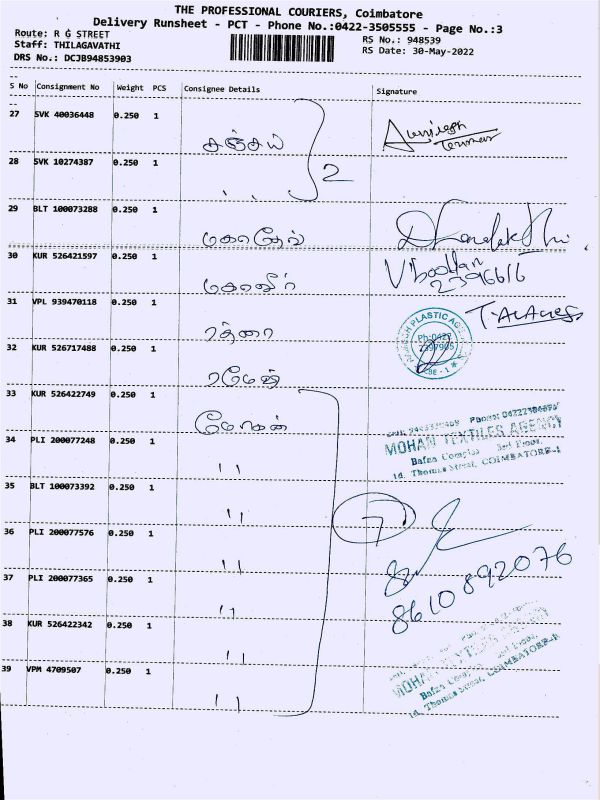 THE PROFESSIONAL COURIERS, Coimbatore
Delivery Runsheet - PCT - Phone No.:0422-3505555 - Page No.:3
Route: R G STREET
RS No.: 948539
Staff: THILAGAVATHI
RS Date: 30-May-2022
DRS No.: DCJB94853903
S No Consignment No Weight PCS Consignee Details Signature
27 SVK 40036448 0.250 1 சஞ்சய்
28 SVK 10274387 0.250 1 " 2
29 BLT 100073288 0.250 1 மகாதேவ்
30 KUR 526421597 0.250 1 மகாவீர் 2396616
31 VPL 939470118 0.250 1 ரத்னா
PLASTIC AG
Ph:0422
CBE - 1
32 KUR 526717488 0.250 1 ரமேஷ்
33 KUR 526422749 0.250 1 மோகன்
MOHAN TEXTILES AGENCY
Bafna Complex 3rd Floor,
1d, Thomas Street, COIMBATORE-1
34 PLI 200077248 0.250 1 "
35 BLT 100073392 0.250 1 " 7
36 PLI 200077576 0.250 1 "
37 PLI 200077365 0.250 1 " 8610892076
38 KUR 526422342 0.250 1 "
39 VPM 4709507 0.250 1 "
MOHAN TEXTILES AGENCY
Bafna Complex 3rd Floor,
1d, Thomas Street, COIMBATORE-1